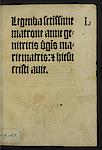 Legenda sctissime
matrone anne ge
nitricis v̓gīs ma
rie matris: et hiesu
cristi auie.
L